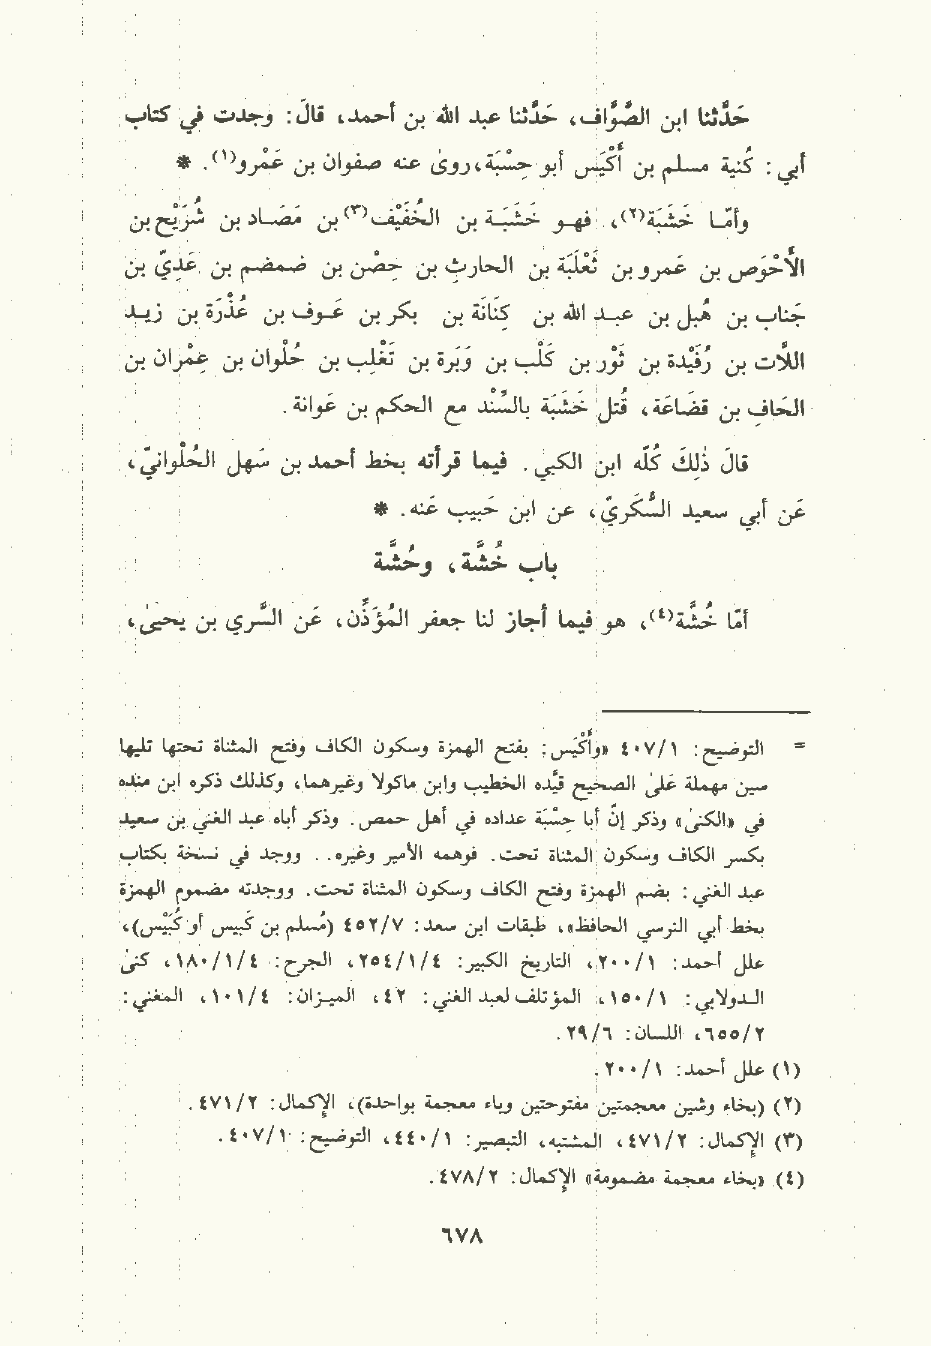 حَدَّثنا ابن الصَّوَّاف، حَدَّثنا عبد الله بن أحمد، قالَ: وجدت في كتاب
أبي: كُنية مسلم بن أُكْيَس أبو حِسْبَة، روىٰ عنه صفوان بن عَمْرو(١). *
وأمّا خَشَبَة(٢)، فهو خَشَبَة بن الخُفَيْف(٣) بن مَصَاد بن شُرَيْح بن
الأَحْوَص بن عَمرو بن ثَعْلَبَة بن الحارِث بن حِصْن بن ضمضم بن عَدِيّ بن
جَناب بن هُبل بن عبد الله بن كِنَانَة بن بكر بن عَوف بن عُذْرَة بن زيد
اللَّات بن رُفَيْدة بن ثَوْر بن كَلْب بن وَبَرة بن تَغْلِب بن حُلْوان بن عِمْران بن
الحَافِ بن قضَاعَة، قُتل خَشَبَة بالسِّنْد مع الحكم بن عَوانة.
قالَ ذٰلِكَ كُلّه ابن الكبي. فيما قرأته بخط أحمد بن سَهل الحُلْوانيّ،
عَن أبي سعيد السُّكَريّ، عن ابن حَبيب عَنه. *
باب خُشَّة، وحُشَّة
أمّا خُشَّة(٤)، هو فيما أجاز لنا جعفر المُؤَذِّن، عَن السَّري بن يحيىٰ،
= التوضيح: ٤٠٧/١ «وأَكْيَس: بفتح الهمزة وسكون الكاف وفتح المثناة تحتها تليها
سين مهملة عَلىٰ الصحيح قيَّده الخطيب وابن ماكولا وغيرهما، وكذلك ذكره ابن منده
في «الكنىٰ» وذكر إنّ أبا حِسْبَة عداده في أهل حمص. وذكر أباه عبد الغني بن سعيد
بكسر الكاف وسكون المثناة تحت. فوهمه الأمير وغيره.. ووجد في نسخة بكتاب
عبد الغني: بضم الهمزة وفتح الكاف وسكون المثناة تحت. ووجدته مضموم الهمزة
بخط أبي النرسي الحافظ»، طبقات ابن سعد: ٤٥٢/٧ (مُسلم بن كَبيس أو كُبَيْس)،
علل أحمد: ٢٠٠/١، التاريخ الكبير: ٢٥٤/١/٤، الجرح: ١٨٠/١/٤، كنىٰ
الدولابي: ١٥٠/١، المؤتلف لعبد الغني: ٤٢، الميزان: ١٠١/٤، المغني:
٦٥٥/٢، اللسان: ٢٩/٦.
(١) علل أحمد: ٢٠٠/١.
(٢) (بخاء وشين معجمتين مفتوحتين وباء معجمة بواحدة)، الإكمال: ٤٧١/٢.
(٣) الإكمال: ٤٧١/٢، المشتبه، التبصير: ٤٤٠/١، التوضيح: ٤٠٧/١.
(٤) «بخاء معجمة مضمومة» الإكمال: ٤٧٨/٢.
٦٧٨